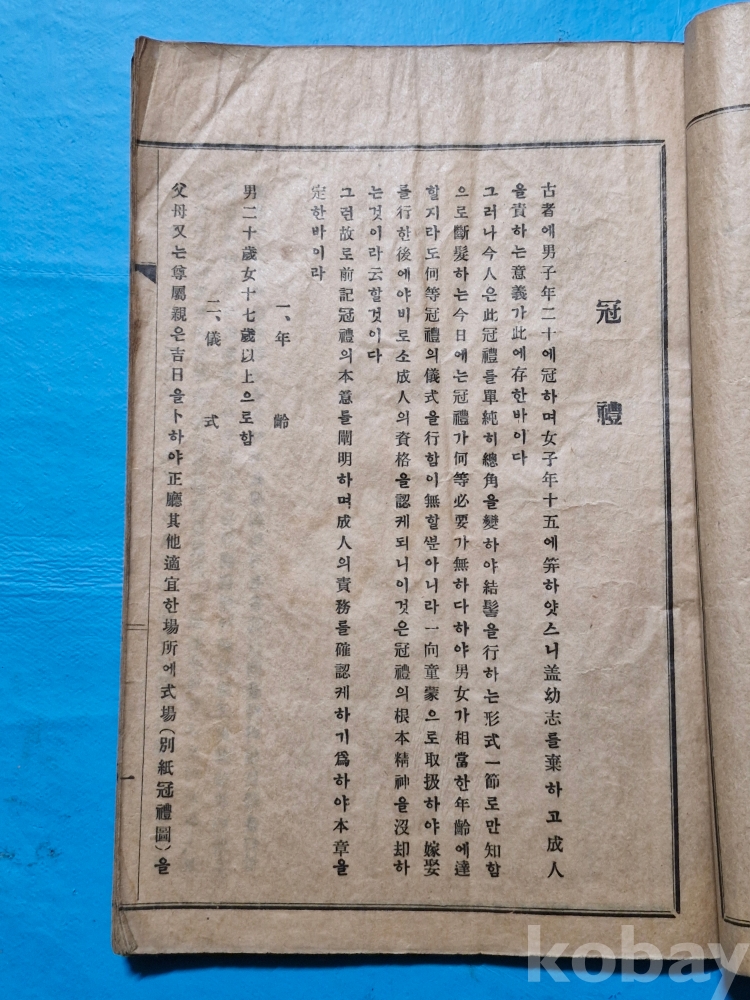 冠禮
古者에男子年二十에冠하며女子年十五에笄하얏스니盖幼志를棄하고成人
을責하는意義가此에存한바이다
그러나今人은此冠禮를單純히總角을變하야結髻을行하는形式一節로만知함
으로斷髮하는今日에는冠禮가何等必要가無하다하야男女가相當한年齡에達
할지라도何等冠禮의儀式을行함이無할뿐아니라一向童蒙으로取扱하야嫁娶
를行한後에야비로소成人의資格을認케되니이것은冠禮의根本精神을沒却하
는것이라云할것이다
그런故로前記冠禮의本意를闡明하며成人의責務를確認케하기爲하야本章을
定한바이라
一、年齡
男二十歲女十七歲以上으로함
二、儀式
父母又는尊屬親은吉日을卜하야正廳其他適宜한場所에式場(別紙冠禮圖)을
一
kobay